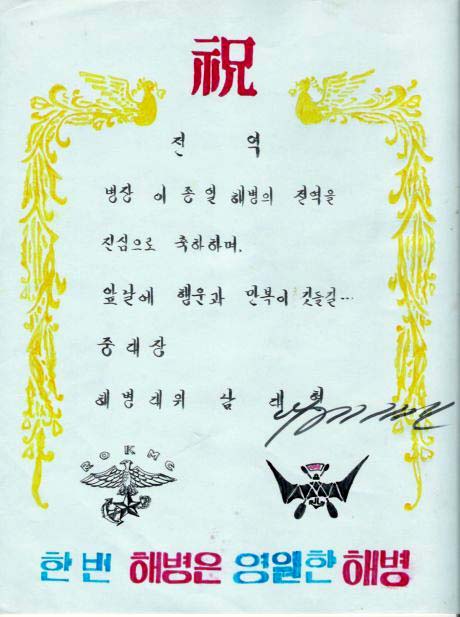 祝
전 역
병장 이 종 열 해병의 전역을
진심으로 축하하며,
앞날에 행운과 만복이 깃들길...
중 대 장
해 병 대 위
ROKMC
한번 해병은 영원한 해병